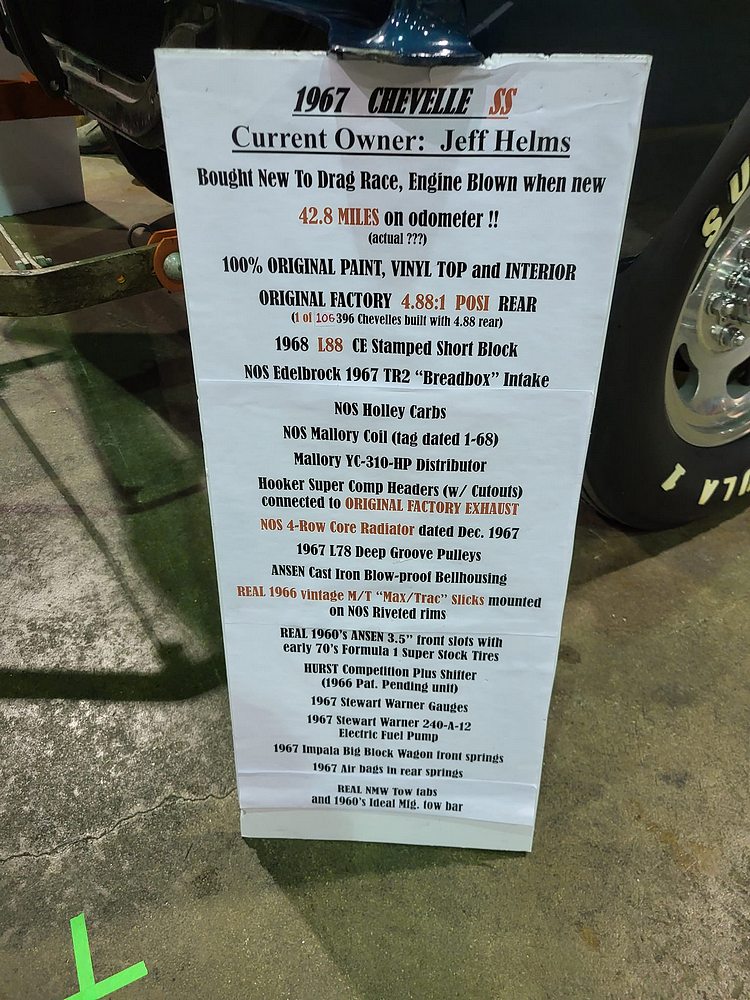 1967 CHEVELLE SS
Current Owner: Jeff Helms
Bought New To Drag Race, Engine Blown when new
42.8 MILES on odometer !!
(actual ???)
100% ORIGINAL PAINT, VINYL TOP and INTERIOR
ORIGINAL FACTORY 4.88:1 POSI REAR
(1 of 106 396 Chevelles built with 4.88 rear)
1968 L88 CE Stamped Short Block
NOS Edelbrock 1967 TR2 “Breadbox” Intake
NOS Holley Carbs
NOS Mallory Coil (tag dated 1-68)
Mallory YC-310-HP Distributor
Hooker Super Comp Headers (w/ Cutouts)
connected to ORIGINAL FACTORY EXHAUST
NOS 4-Row Core Radiator dated Dec. 1967
1967 L78 Deep Groove Pulleys
ANSEN Cast Iron Blow-proof Bellhousing
REAL 1966 vintage M/T “Max/Trac” Slicks mounted
on NOS Riveted rims
REAL 1960’s ANSEN 3.5” front slots with
early 70’s Formula 1 Super Stock Tires
HURST Competition Plus Shifter
(1966 Pat. Pending unit)
1967 Stewart Warner Gauges
1967 Stewart Warner 240-A-12
Electric Fuel Pump
1967 Impala Big Block Wagon front springs
1967 Air bags in rear springs
REAL NMW Tow tabs
and 1960’s Ideal Mfg. tow bar
SU
ULA 1